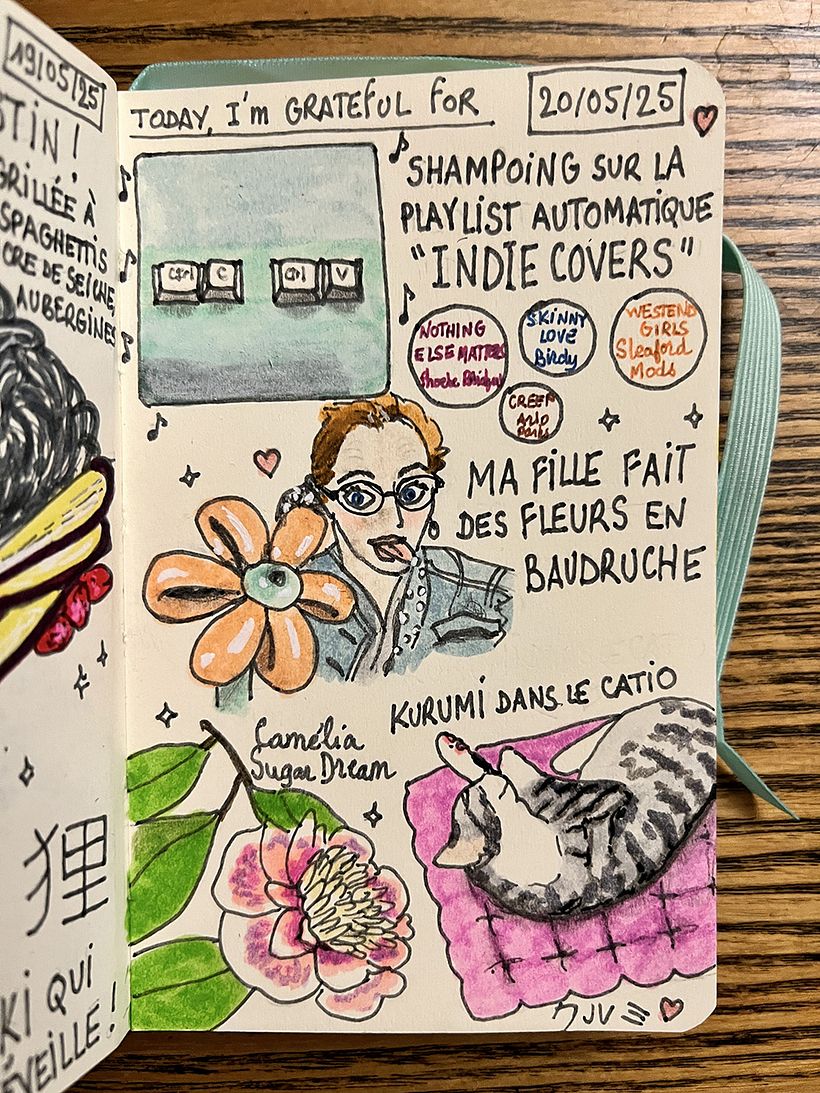 19/05/25
TIN !
GRILLÉE À
SPAGHETTIS
CRE DE SEICHE,
AUBERGINES
狸
KI QUI
ÉVEILLE !
TODAY, I'm GRATEFUL FOR
20/05/25
Ctrl C Ctrl V
SHAMPOING SUR LA
PLAYLIST AUTOMATIQUE
"INDIE COVERS"
NOTHING
ELSE MATTERS
Phoebe
SKINNY
LOVE
Birdy
WESTEND
GIRLS
Sleaford
Mods
CREEP
Arlo
Parks
MA FILLE FAIT
DES FLEURS EN
BAUDRUCHE
KURUMI DANS LE CATIO
Camélia
Sugar Dream
JV